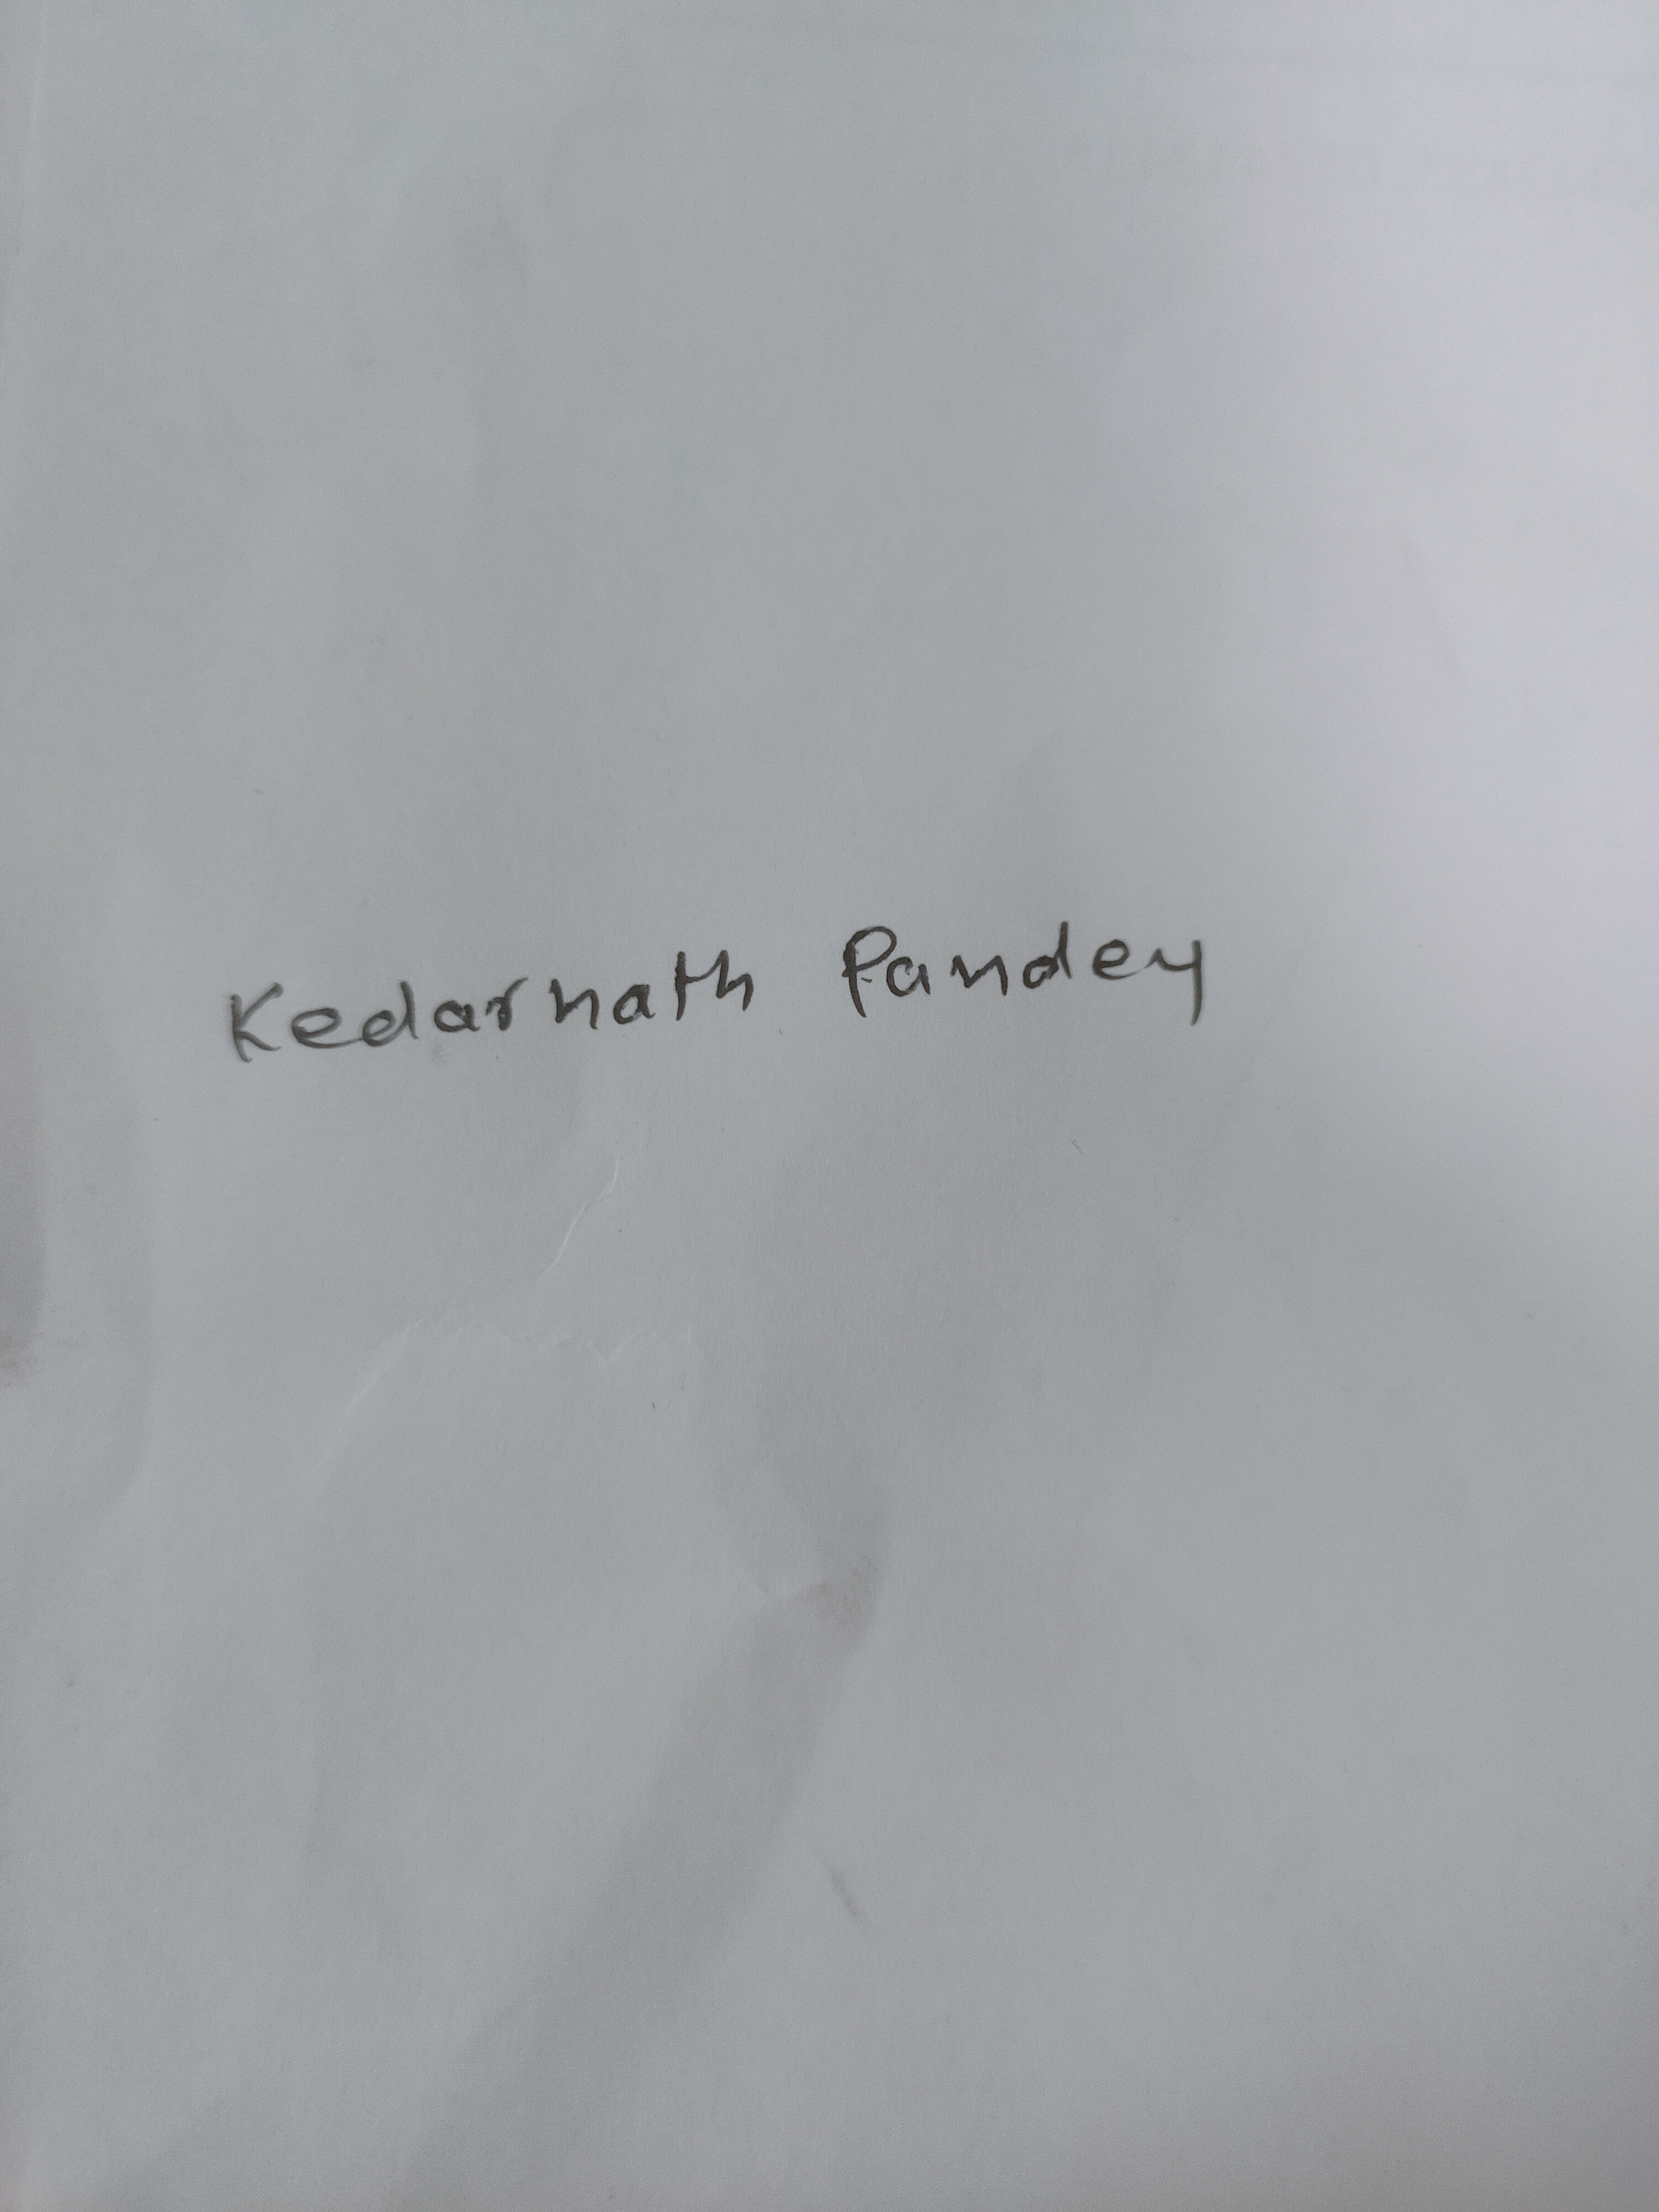 Kedarnath Pandey